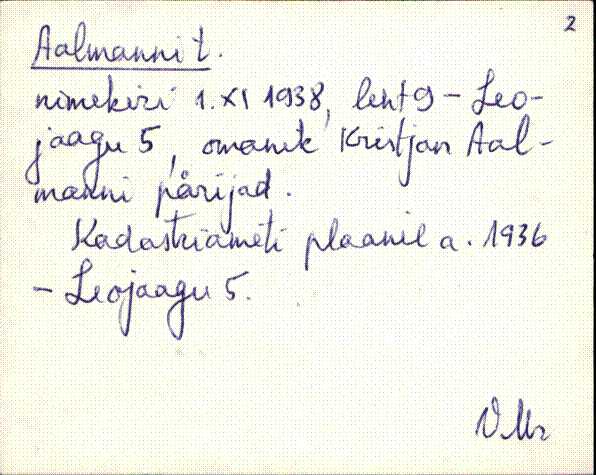 2
Aalmanni t.
nimekiri 1.XI 1938, leht 9 – Leo-
jaagu 5, omanik Kristjan Aal-
manni pärijad.
Kadastriameti plaanil a. 1936
– Leojaagu 5.